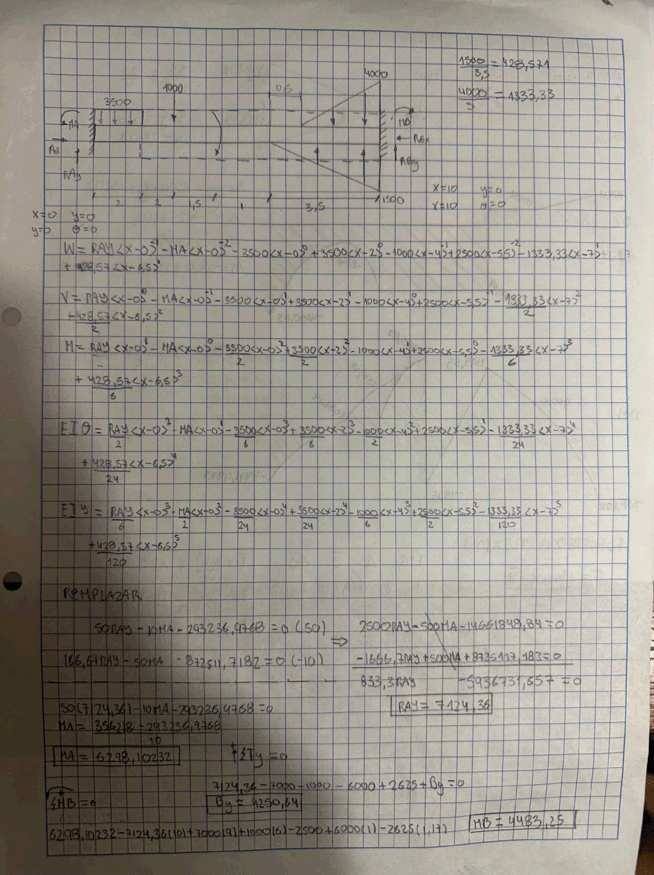 1500/3,5 = 428,571
4000
4000/3 = 1333,33
1000
0,5
3500
MA
MB
Ax
RBx
RAy
RBy
1500
2 2 1,5 1 3,5
x=10 y=0
x=10 θ=0
x=0 y=0
y=0 θ=0
W = RAY<x-0>^-1 - MA<x-0>^-2 - 3500<x-0>^0 + 3500<x-2>^0 - 1000<x-4>^-1 + 2500<x-5,5>^-2 - 1333,33<x-7>^1
+ 428,57<x-6,5>^1
V = RAY<x-0>^0 - MA<x-0>^-1 - 3500<x-0>^1 + 3500<x-2>^1 - 1000<x-4>^0 + 2500<x-5,5>^-1 - 1333,33/2<x-7>^2
+ 428,57/2<x-6,5>^2
M = RAY<x-0>^1 - MA<x-0>^0 - 3500/2<x-0>^2 + 3500/2<x-2>^2 - 1000<x-4>^1 + 2500<x-5,5>^0 - 1333,33/6<x-7>^3
+ 428,57/6<x-6,5>^3
EIθ = RAY/2<x-0>^2 - MA<x-0>^1 - 3500/6<x-0>^3 + 3500/6<x-2>^3 - 1000/2<x-4>^2 + 2500<x-5,5>^1 - 1333,33/24<x-7>^4
+ 428,57/24<x-6,5>^4
EIy = RAY/6<x-0>^3 - MA/2<x-0>^2 - 3500/24<x-0>^4 + 3500/24<x-2>^4 - 1000/6<x-4>^3 + 2500/2<x-5,5>^2 - 1333,33/120<x-7>^5
+ 428,57/120<x-6,5>^5
REMPLAZAR
50RAY - 10MA - 293236,9768 = 0 (50) ⇒ 2500RAY - 500MA - 14661848,84 = 0
166,67RAY - 50MA - 872511,7182 = 0 (-10) -1666,7RAY + 500MA + 8725117,183 = 0
833,3RAY - 5936731,657 = 0
50(7124,36) - 10MA - 293236,9768 = 0
RAY = 7124,36
MA = 356218 - 293236,9768/10
MA = 6298,10232
↑ΣFy = 0
7124,36 - 7000 - 1000 - 6000 + 2625 + By = 0
ΣMB = 0
By = 4250,64
6298,10232 - 7124,36(10) + 7000(9) + 1000(6) - 2500 + 6000(1) - 2625(1,17)
MB = 4483,25